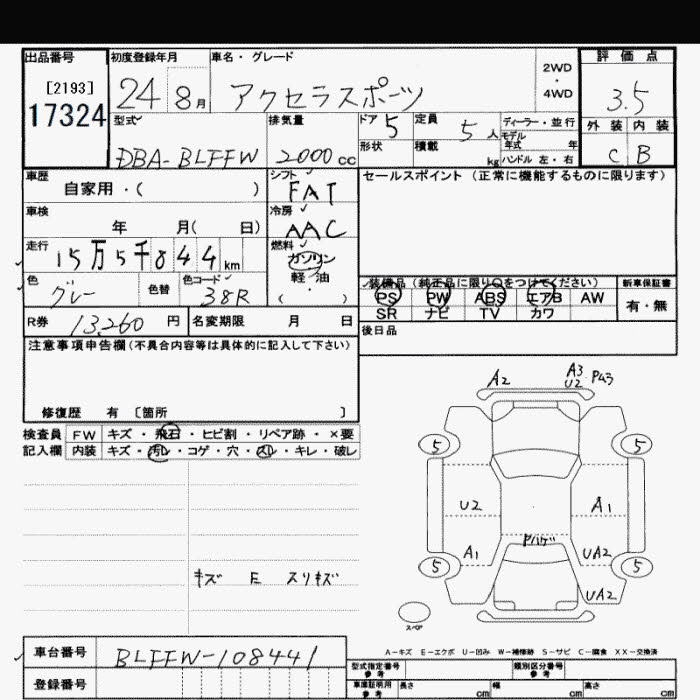 出品番号 初度登録年月 車名・グレード 2WD・4WD 評価点
[2193]
17324
24 8月 アクセラスポーツ 3.5
型式 排気量 ドア 5 定員 5人 ディーラー・並行 外装 内装
モデル年式 年
DBA-BLFFW 2000cc 形状 積載 kg ハンドル 左・右 C B
車歴 シフト セールスポイント (正常に機能するものに限ります)
自家用・( ) FAT
車検 冷房
年 月( 日) AAC
走行 燃料
15万5千844km ガソリン
軽・油
( )
色 グレー 色替 色コード 38R
装備品 (純正品に限り〇をつけてください) 新車保証書
PS PW ABS エアB AW 有・無
SR ナビ TV カワ
R券 13,260円 名変期限 月 日 後日品
注意事項申告欄(不具合内容等は具体的に記入して下さい)
修復歴 有 [箇所 ]
検査員 FW キズ・飛石・ヒビ割・リペア跡・×要
記入欄 内装 キズ・汚レ・コゲ・穴・スレ・キレ・破レ
A2 A3 U2 P43
5 5
U2 A1
Pハゲ
A1 UA2
5 5
UA2
キズ E スリキズ
スペア
A-キズ E-エクボ U-凹み W-補修跡 S-サビ C-腐食 XX-交換済
車台番号 BLFFW-108441
型式指定番号 参考 類別区分番号 参考
登録番号 車庫証明用 参考 長さ cm 幅 cm 高さ cm